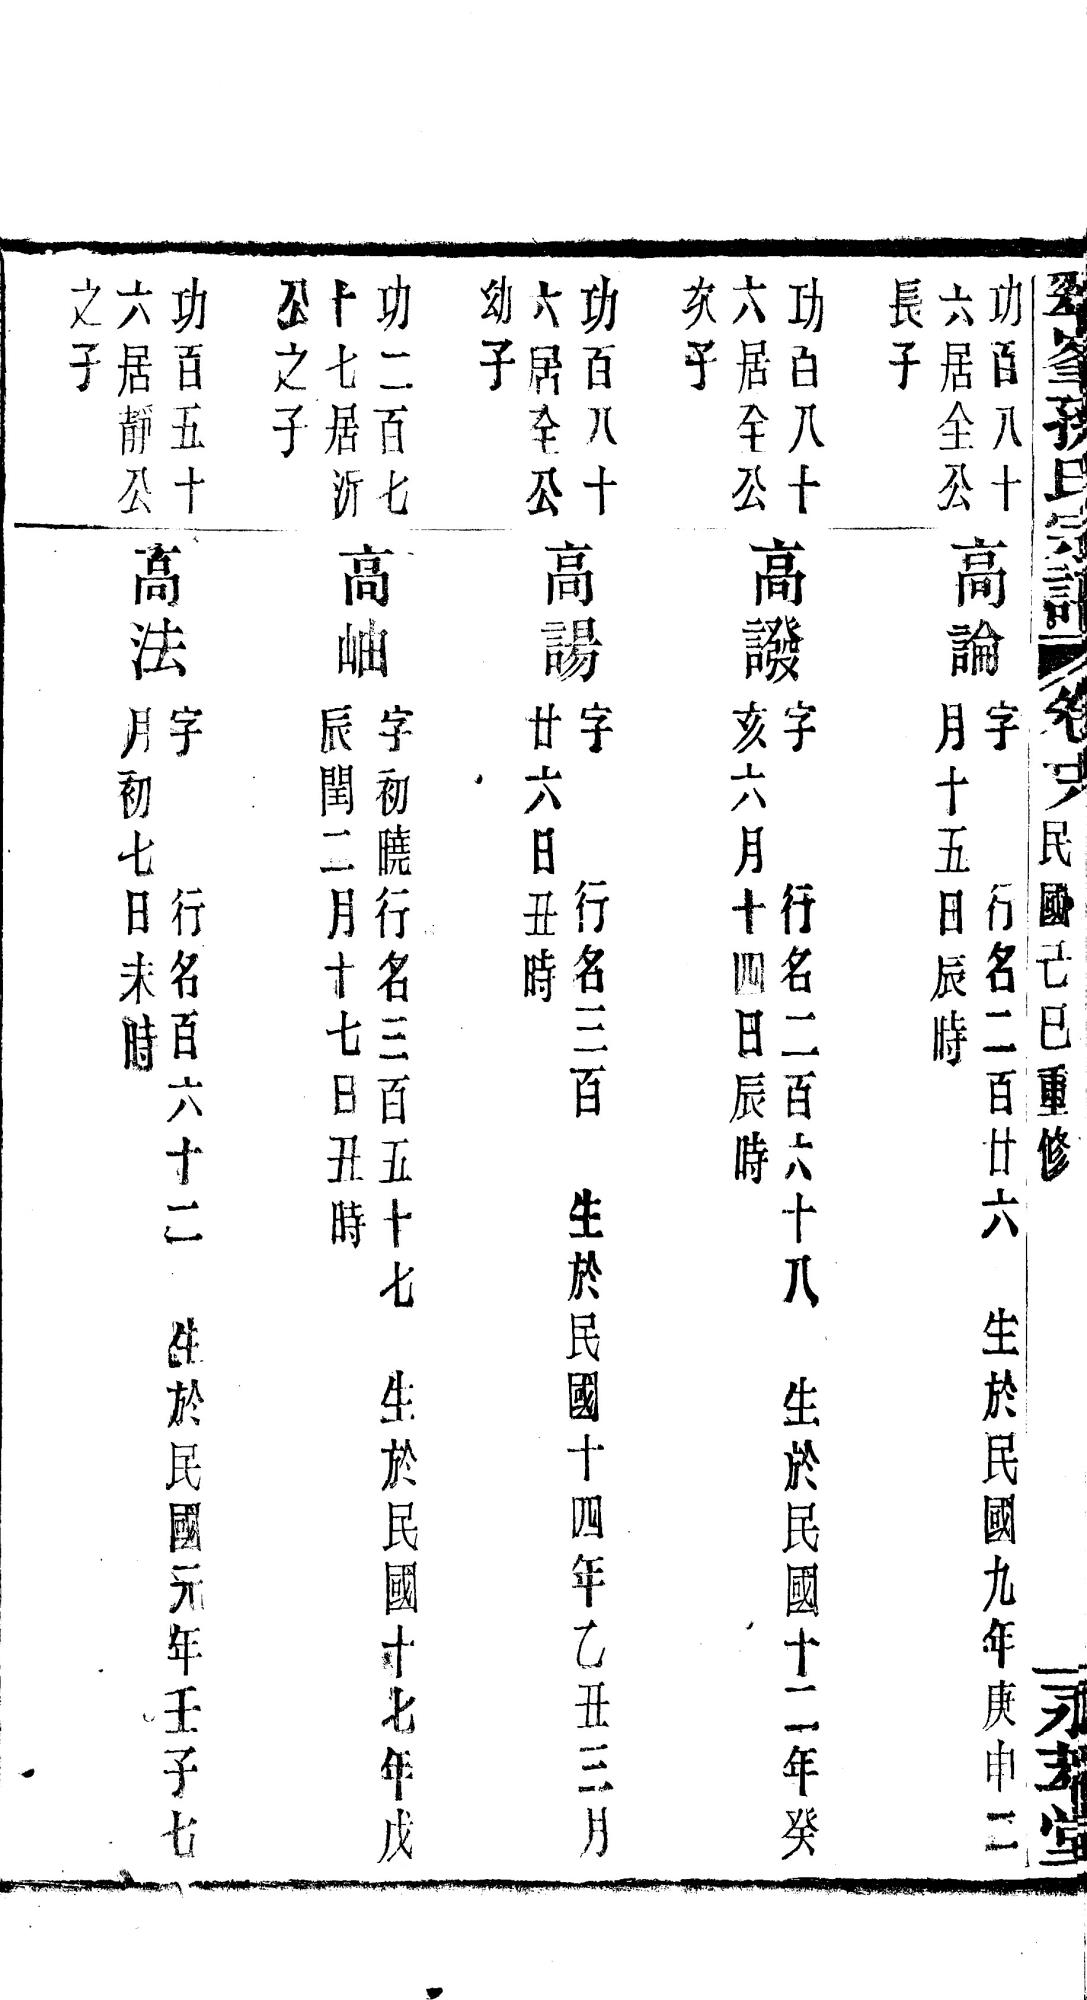 峯孫氏宗譜 卷十六 民國己巳重修 永 堂
功百八十
六居全公
長子
高論
字 行名二百廿六 生於民國九年庚申二
月十五日辰時
功百八十
六居全公
次子
高譭
字 行名二百六十八 生於民國十二年癸
亥六月十四日辰時
功百八十
六居全公
幼子
高諹
字 行名三百 生於民國十四年乙丑三月
廿六日丑時
功二百七
十七居沂
公之子
高岫
字初曉行名三百五十七 生於民國十七年戊
辰閏二月十七日丑時
功百五十
六居靜公
之子
高法
字 行名百六十二 生於民國元年壬子七
月初七日未時